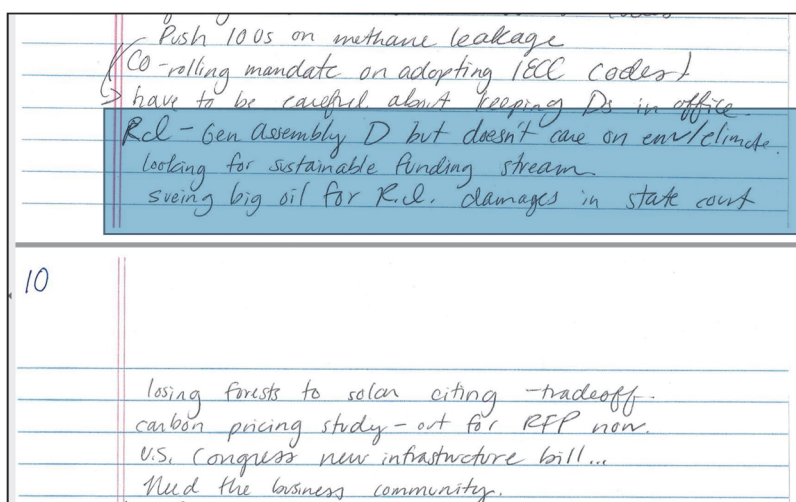 Push 100s on methane leakage
CO - rolling mandate on adopting IECC codes
have to be careful about keeping Ds in office.
R.I. - Gen Assembly D but doesn't care on env/climate.
looking for sustainable funding stream.
sueing big oil for R.I. damages in state court
10
losing forests to solar citing - tradeoff.
carbon pricing study - out for RFP now.
U.S. Congress new infrastructure bill...
Need the business community.